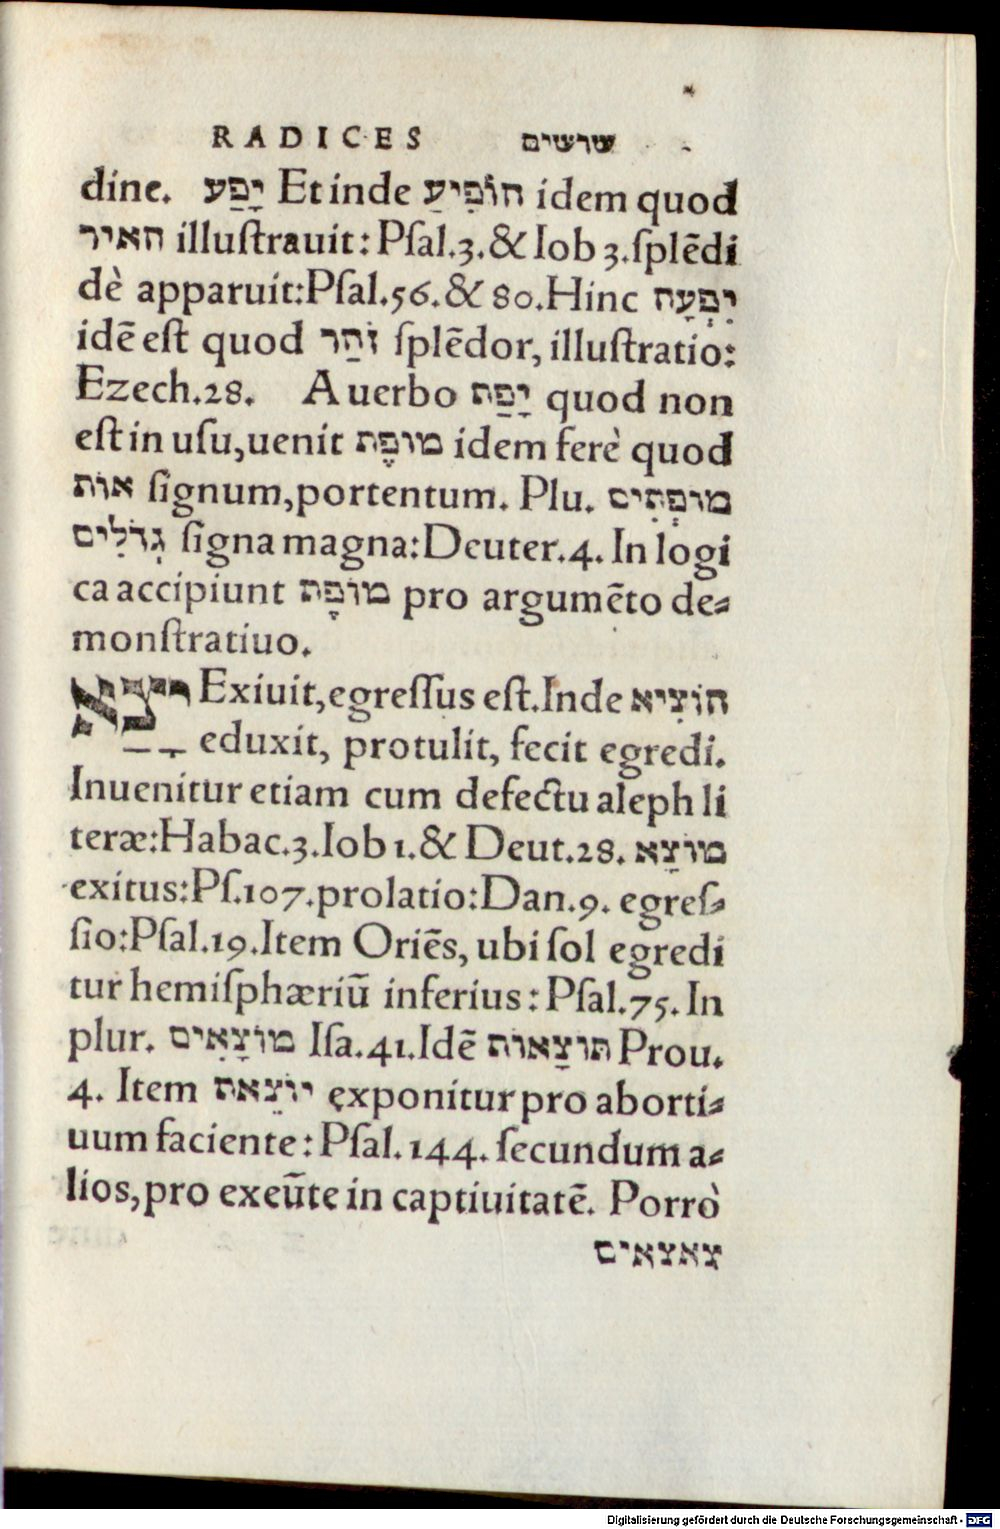 RADICES שרשים
dine. יָפַע Et inde הוֹפִיעַ idem quod
האיר illuſtrauit: Pſal.3.& Iob 3.ſplēdi
dè apparuit:Pſal.56.& 80.Hinc יִפְעָה
idē eſt quod זֹהַר ſplēdor, illuſtratio:
Ezech.28. A uerbo יָפַת quod non
eſt in uſu,uenit מופֶת idem ferè quod
אות ſignum,portentum. Plu. מופְתִים
גְדֹלִים ſigna magna:Deuter.4. In logi
ca accipiunt מוֹפָת pro argumēto de⸗
monſtratiuo.
יָצַא Exiuit,egreſſus eſt.Inde הוֹצִיא
eduxit, protulit, fecit egredi.
Inuenitur etiam cum defectu aleph li
teræ:Habac.3.Iob 1.& Deut.28. מוֹצָא
exitus:Pſ.107.prolatio:Dan.9. egreſ⸗
ſio:Pſal.19.Item Oriēs, ubi ſol egredi
tur hemiſphæriū inferius: Pſal.75. In
plur. מוֹצָאִים Iſa.41.Idē תּוֹצָאות Prou.
4. Item יוֹצֵאת exponitur pro aborti⸗
uum faciente: Pſal. 144. ſecundum a⸗
lios,pro exeūte in captiuitatē. Porrò
צאצאים
Digitalisierung gefördert durch die Deutsche Forschungsgemeinschaft - DFG